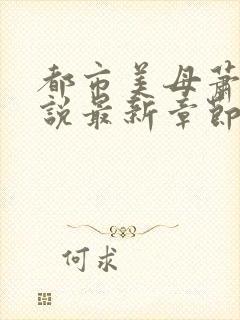 都市美母蕭
說最新章節
何求